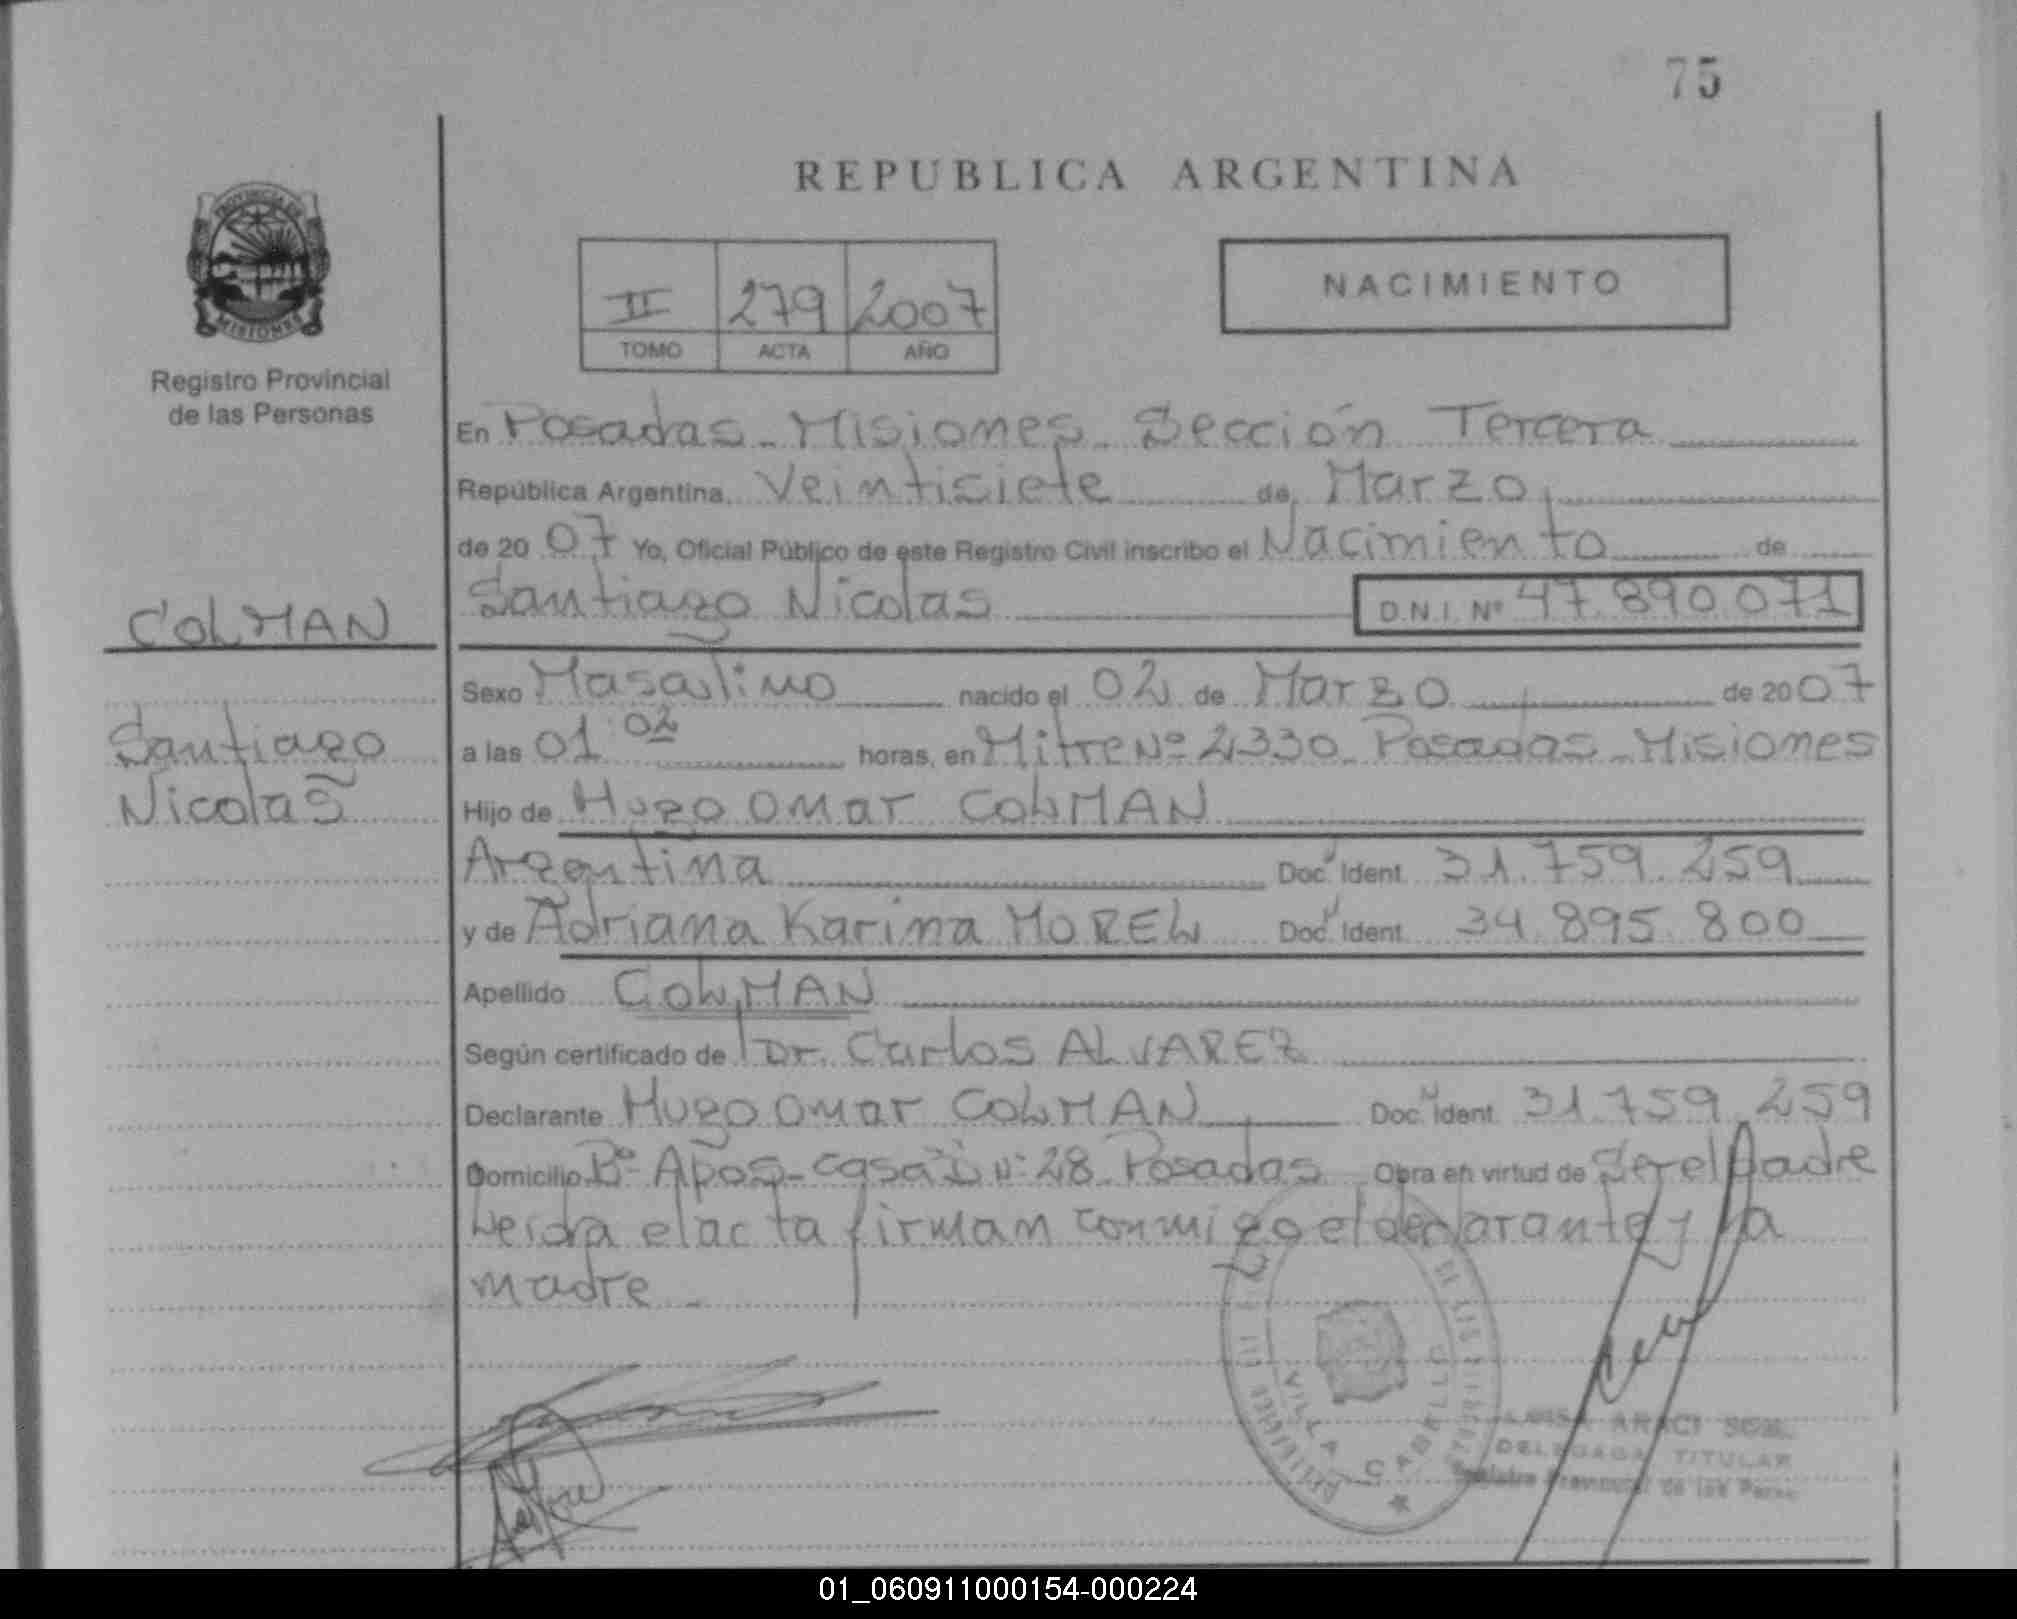 75
REPUBLICA ARGENTINA
PROVINCIA DE
MISIONES
Registro Provincial
de las Personas
II 279 2007
TOMO ACTA AÑO
NACIMIENTO
En Posadas - Misiones - Sección Tercera
República Argentina, Veintisiete de Marzo
de 2007 Yo, Oficial Público de este Registro Civil inscribo el Nacimiento de
Santiago Nicolas D.N.I. Nº 47.890.071
COLMAN
Santiago
Nicolas
Sexo Masculino nacido el 02 de Marzo de 2007
a las 01 02 horas, en Mitre Nº 2330 Posadas - Misiones
Hijo de Hugo Omar COLMAN
Argentina Doc. Ident. 31.759.259
y de Adriana Karina MOREL Doc. Ident. 34.895.800
Apellido COLMAN
Según certificado de Dr. Carlos ALVAREZ
Declarante Hugo Omar COLMAN Doc. Ident. 31.759.259
Domicilio Bº Apos - casa Nº 28 Posadas Obra en virtud de Ser el padre
Leida el acta firman conmigo el declarante y la
madre -
VILLA CABELLO
ARACI
DELEGADA TITULAR
Registro Provincial de las Pers
01_060911000154-000224